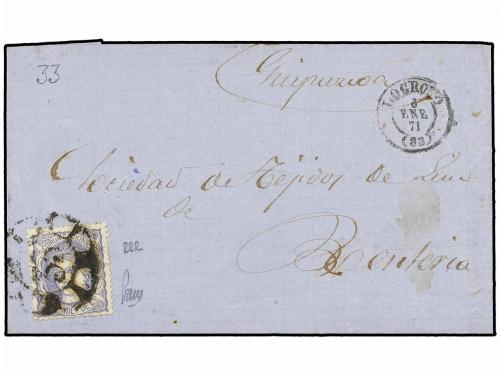 33
Guipuzcoa
LOGROÑO
6
ENE
71
(33)
Sociedad de Tejidos de Lino
de
Renteria